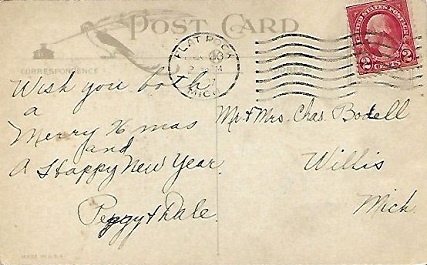 POST CARD
FLAT ROCK
MICH.
UNITED STATES POSTAGE
2 CENTS 2
CORRESPONDENCE
Wish you both
a
Merry Xmas
and
A Happy New Year.
Peggy & Dale.
Mr & Mrs. Chas. Bodell
Willis
Mich.
MADE IN U.S.A.